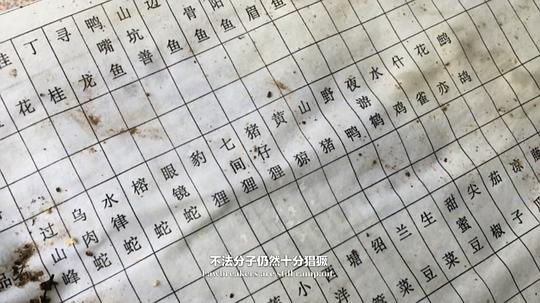 桂花
丁桂
寻龙
鸭嘴鱼
山坑善
鱼
骨鱼
鱼
眉鱼
过山峰
乌肉蛇
水律蛇
榕蛇
眼镜蛇
豹狸
七间狸
猪仔狸
黄猄
山猪
野鸭
夜游鹤
水鸡
什雀
花亦
鹧鸪
小
塘
绍菜
兰豆
生菜
甜蜜豆
尖椒
茄子
凉
不法分子仍然十分猖獗
Lawbreakers are still rampant.